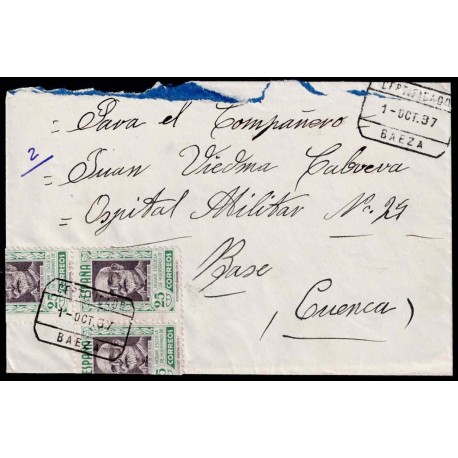 CERTIFICADO
1-OCT.37
BAEZA
= Para el Compañero
2/
= Juan Viedma Cabrera
= Ospital Militar No. 29
Base
(Cuenca)
ESPAÑA
CORREOS
25
CERTIFICADO
1-OCT.37
BAEZA
ESPAÑA
CORREOS
25